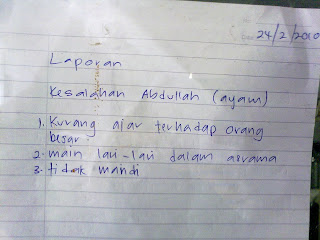 24/2/2010
Laporan
Kesalahan Abdullah (ayam)
1. Kurang ajar terhadap orang
besar.
2. main lari-lari dalam asrama
3. tidak mandi